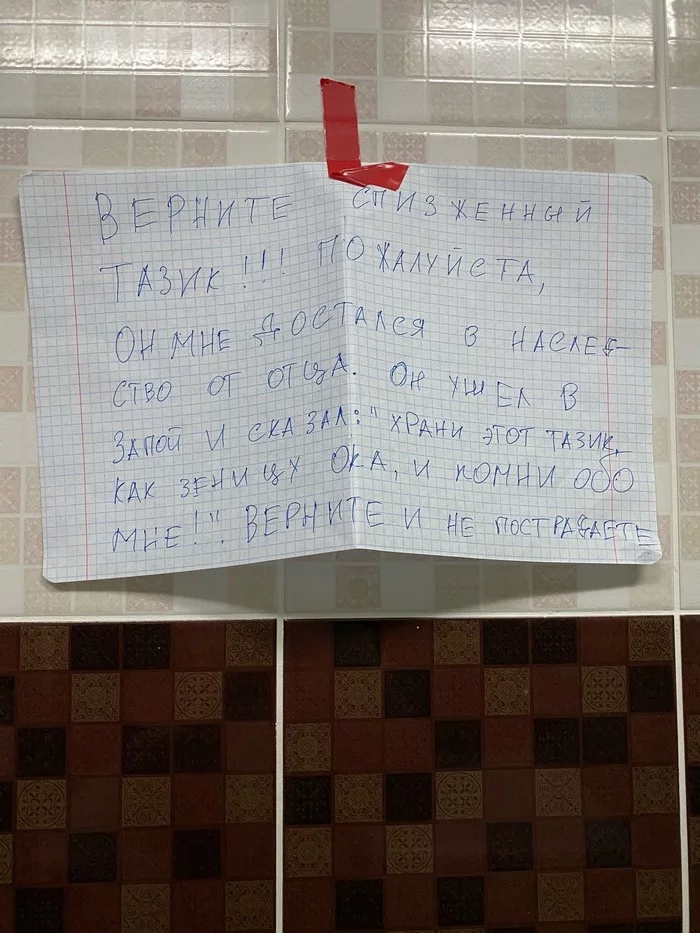 ВЕРНИТЕ СПИЗЖЕННЫЙ
ТАЗИК!!! ПОЖАЛУЙСТА,
ОН МНЕ ДОСТАЛСЯ В НАСЛЕД-
СТВО ОТ ОТЦА. ОН УШЕЛ В
ЗАПОЙ И СКАЗАЛ: "ХРАНИ ЭТОТ ТАЗИК,
КАК ЗЕНИЦУ ОКА, И ПОМНИ ОБО
МНЕ!". ВЕРНИТЕ И НЕ ПОСТРАДАЕТЕ